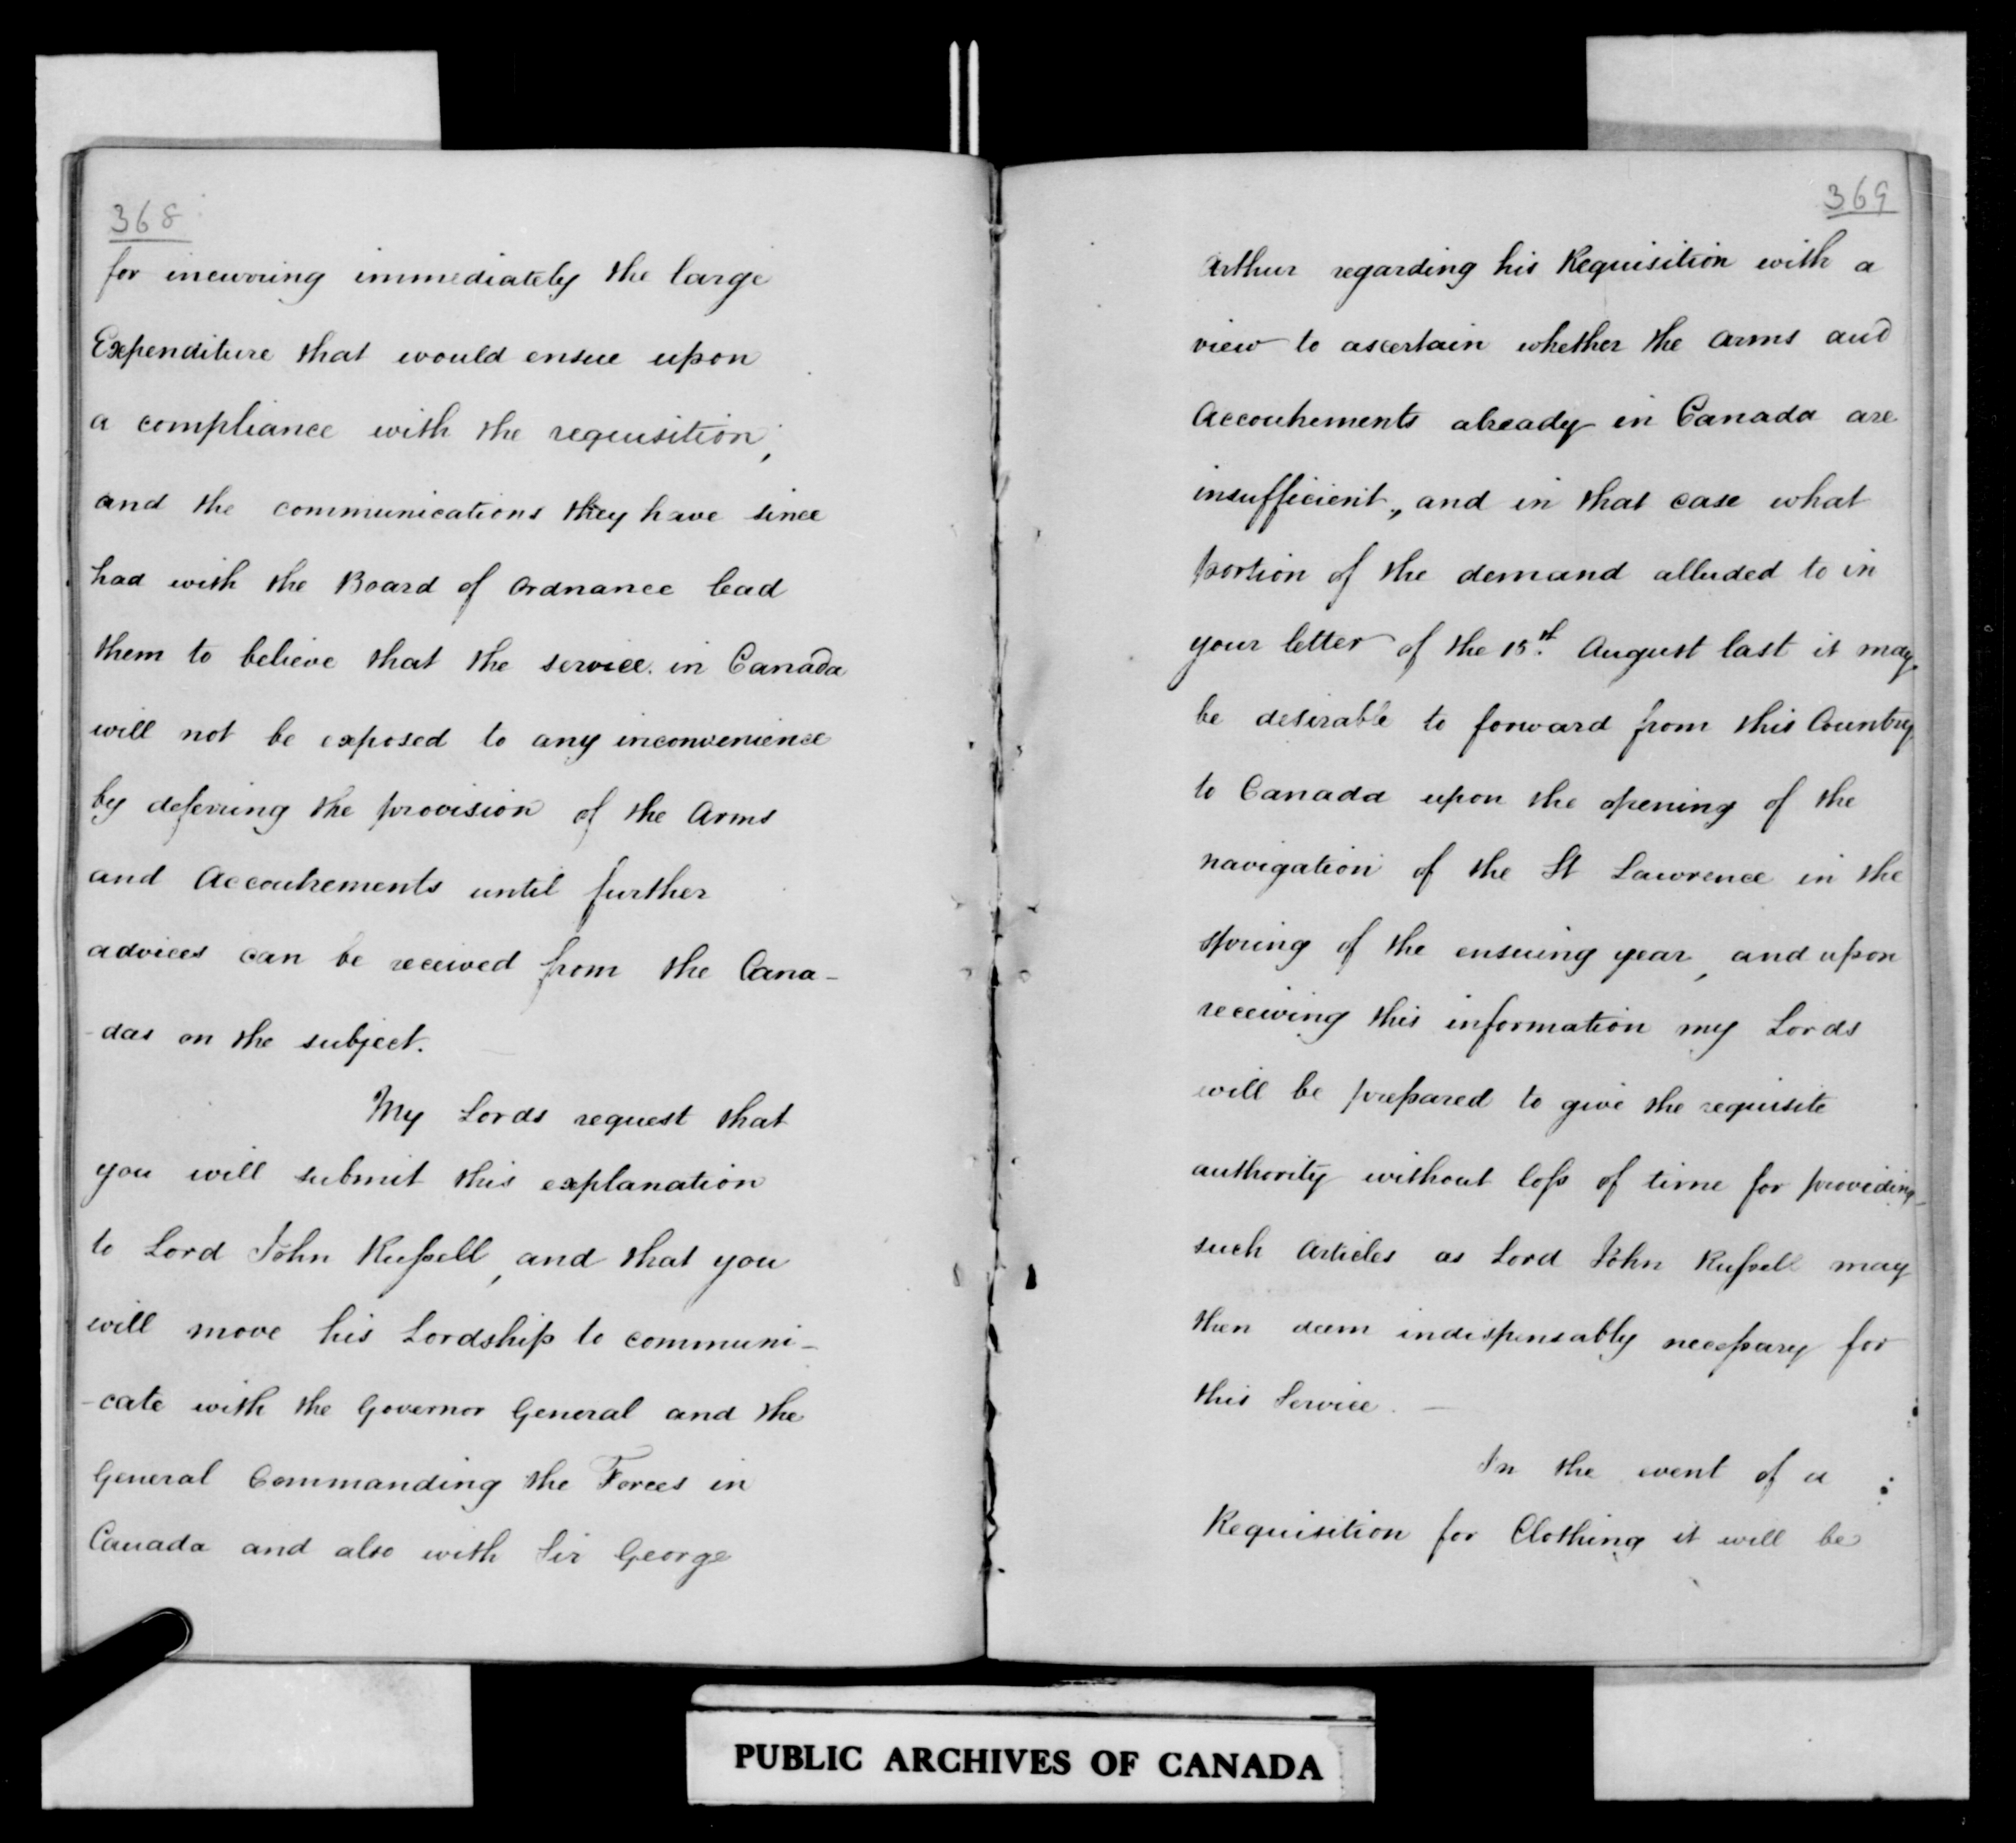 368
for incurring immediately the large
Expenditure that would ensue upon
a compliance with the requisition,
and the communications they have since
had with the Board of Ordnance lead
them to believe that the service in Canada
will not be exposed to any inconvenience
by deferring the provision of the Arms
and Accoutrements until further
advices can be received from the Cana-
-das on the subject.
My Lords request that
you will submit this explanation
to Lord John Russell, and that you
will move his Lordship to communi-
-cate with the Governor General and the
General Commanding the Forces in
Canada and also with Sir George
369
Arthur regarding his Requisition with a
view to ascertain whether the Arms and
Accoutrements already in Canada are
insufficient, and in that case what
portion of the demand alluded to in
your letter of the 15th August last it may
be desirable to forward from this Country
to Canada upon the opening of the
navigation of the St Lawrence in the
Spring of the ensuing year, and upon
receiving this information my Lords
will be prepared to give the requisite
authority without loss of time for providing
such Articles as Lord John Russell may
then deem indispensably necessary for
this Service. —
In the event of a
Requisition for Clothing it will be
PUBLIC ARCHIVES OF CANADA